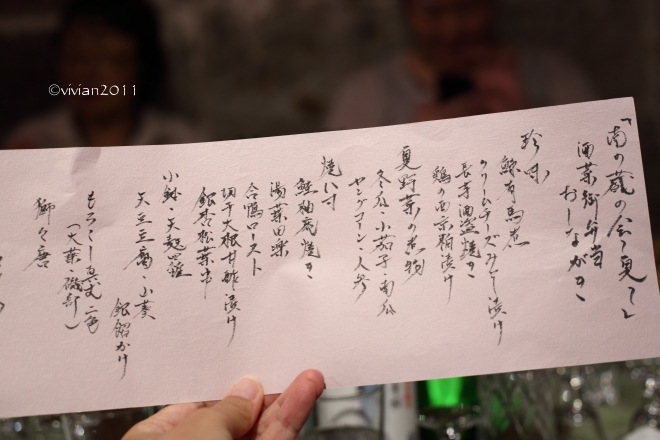 「南の蔵の会 夏」
酒菜御弁当
おしながき
珍味
鯨有馬煮
クリームチーズみそ漬け
長芋酒盗焼き
鶏の西京粕漬け
夏野菜の煮物
冬瓜・小茄子・南瓜
ヤングコーン・人参
焼八寸
鮭柚庵焼き
湯葉田楽
合鴨ロースト
切干大根甘酢漬け
小鉢・天起
天豆豆腐・小菱
銀餡かけ
もろこし真丈二色
(大葉・磯部)
獅々唐
©vivian2011